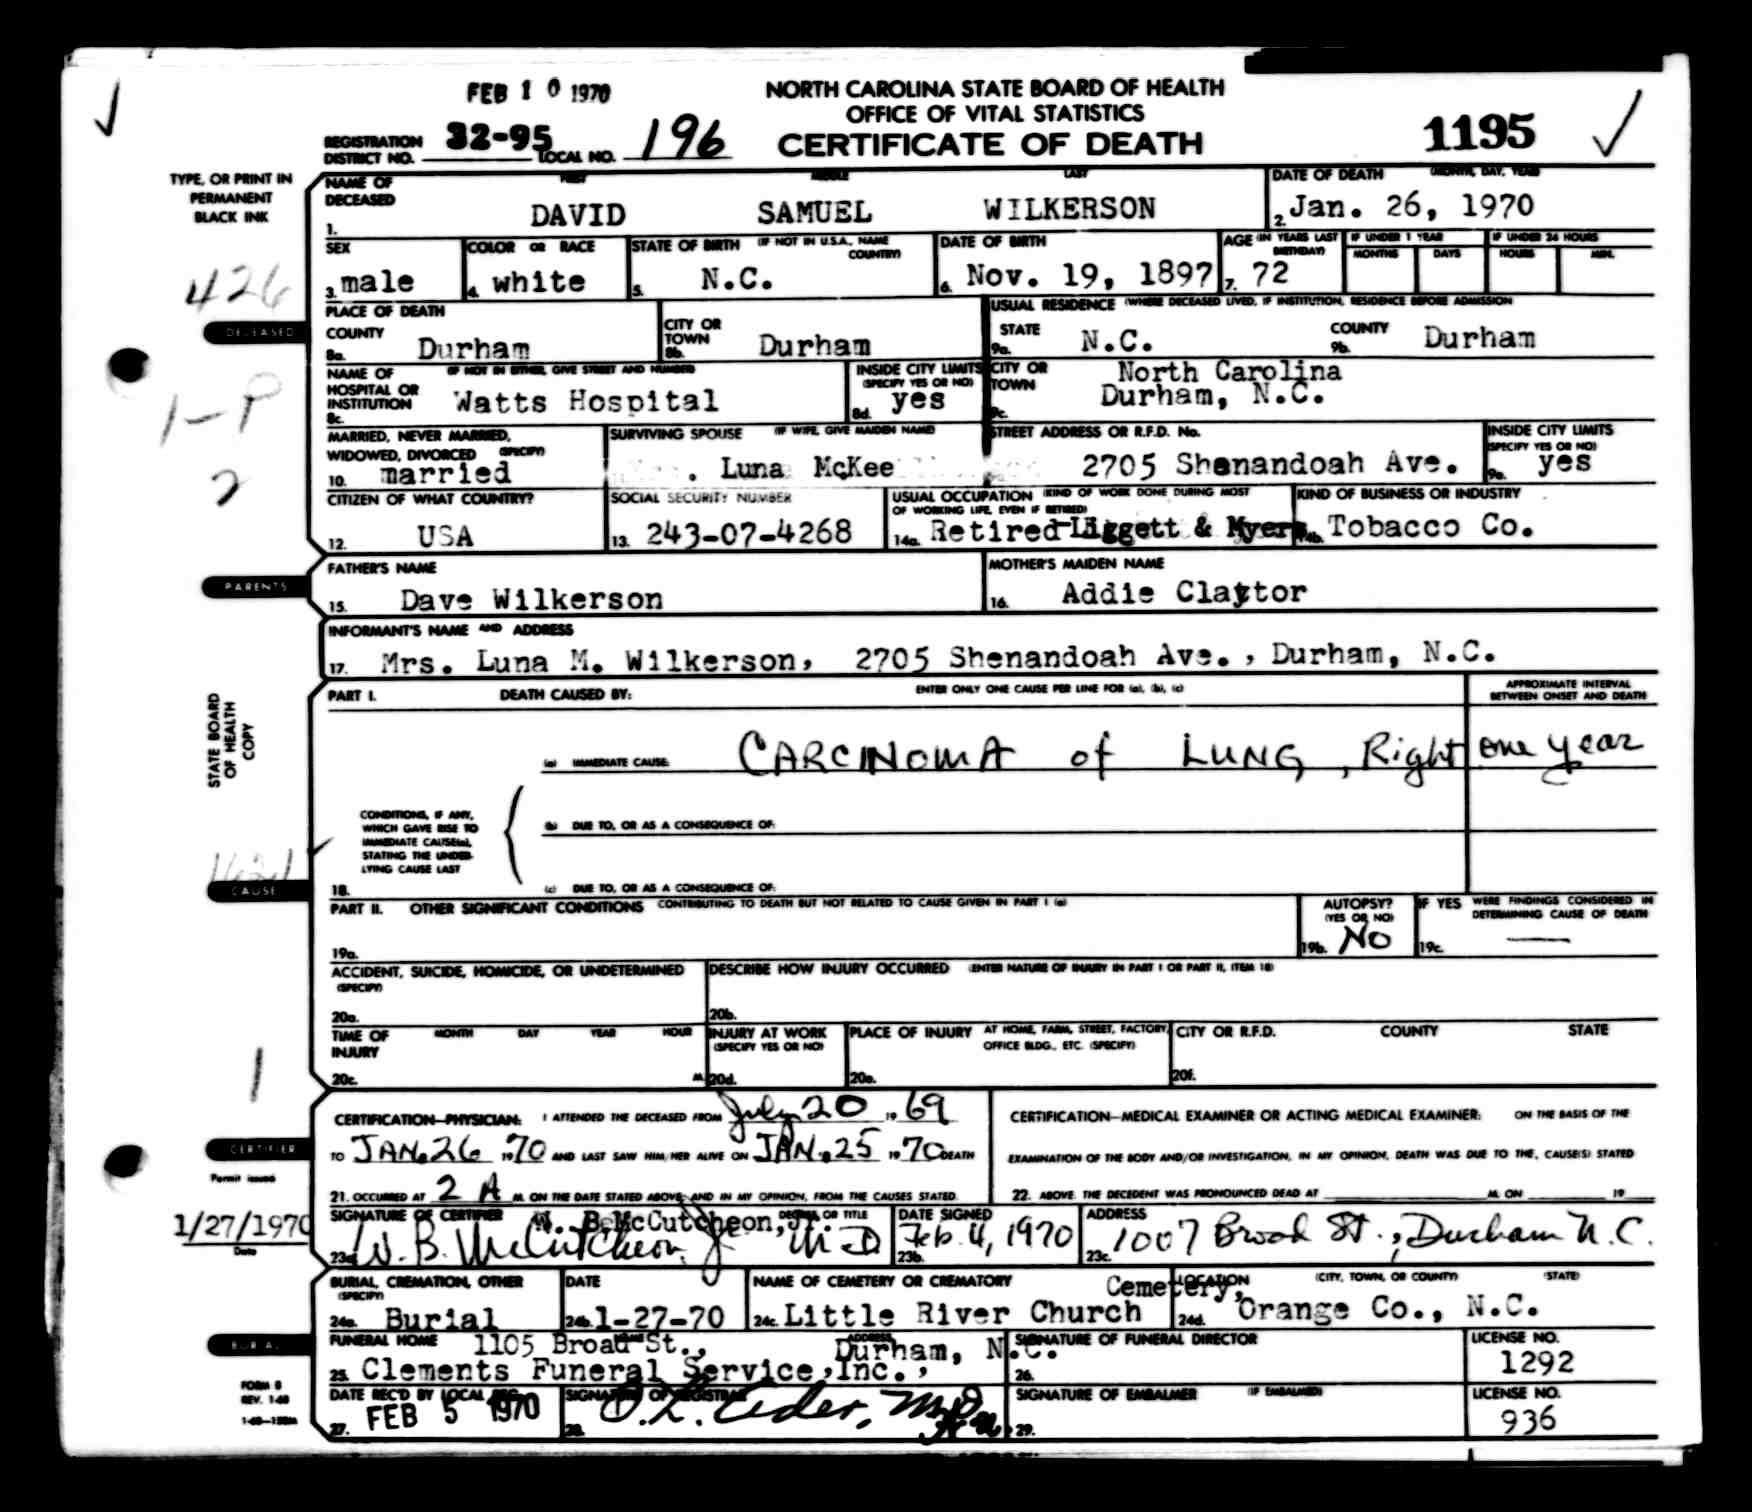 FEB 10 1970
NORTH CAROLINA STATE BOARD OF HEALTH
OFFICE OF VITAL STATISTICS
CERTIFICATE OF DEATH
REGISTRATION DISTRICT NO. 32-95 LOCAL NO. 196
1195
TYPE, OR PRINT IN
PERMANENT
BLACK INK
NAME OF DECEASED FIRST MIDDLE LAST
1. DAVID SAMUEL WILKERSON
DATE OF DEATH (MONTH, DAY, YEAR)
2. Jan. 26, 1970
SEX
3. male
COLOR OR RACE
4. white
STATE OF BIRTH (IF NOT IN U.S.A., NAME COUNTRY)
5. N.C.
DATE OF BIRTH
6. Nov. 19, 1897
AGE (IN YEARS LAST BIRTHDAY)
7. 72
IF UNDER 1 YEAR
MONTHS DAYS
IF UNDER 24 HOURS
HOURS MIN.
426
DECEASED
1-P
2
PLACE OF DEATH
COUNTY
8a. Durham
CITY OR TOWN
8b. Durham
USUAL RESIDENCE (WHERE DECEASED LIVED, IF INSTITUTION, RESIDENCE BEFORE ADMISSION
STATE
9a. N.C.
COUNTY
9b. Durham
NAME OF HOSPITAL OR INSTITUTION (IF NOT IN EITHER, GIVE STREET AND NUMBER)
8c. Watts Hospital
INSIDE CITY LIMITS (SPECIFY YES OR NO)
8d. yes
CITY OR TOWN
North Carolina
9c. Durham, N.C.
MARRIED, NEVER MARRIED,
WIDOWED, DIVORCED (SPECIFY)
10. married
SURVIVING SPOUSE (IF WIFE, GIVE MAIDEN NAME)
. Luna McKee
STREET ADDRESS OR R.F.D. No.
2705 Shenandoah Ave.
INSIDE CITY LIMITS
(SPECIFY YES OR NO)
9e. yes
CITIZEN OF WHAT COUNTRY?
12. USA
SOCIAL SECURITY NUMBER
13. 243-07-4268
USUAL OCCUPATION (KIND OF WORK DONE DURING MOST OF WORKING LIFE, EVEN IF RETIRED)
14a. Retired-Liggett & Myers
KIND OF BUSINESS OR INDUSTRY
14b. Tobacco Co.
PARENTS
FATHER'S NAME
15. Dave Wilkerson
MOTHER'S MAIDEN NAME
16. Addie Claytor
INFORMANT'S NAME AND ADDRESS
17. Mrs. Luna M. Wilkerson, 2705 Shenandoah Ave., Durham, N.C.
STATE BOARD
OF HEALTH
COPY
PART I. DEATH CAUSED BY: ENTER ONLY ONE CAUSE PER LINE FOR (a), (b), (c)
APPROXIMATE INTERVAL
BETWEEN ONSET AND DEATH
(a) IMMEDIATE CAUSE: CARCINOMA of LUNG, Right one year
CONDITIONS, IF ANY,
WHICH GAVE RISE TO
IMMEDIATE CAUSE(a),
STATING THE UNDER-
LYING CAUSE LAST
(b) DUE TO, OR AS A CONSEQUENCE OF:
(c) DUE TO, OR AS A CONSEQUENCE OF:
18.
1621
CAUSE
PART II. OTHER SIGNIFICANT CONDITIONS CONTRIBUTING TO DEATH BUT NOT RELATED TO CAUSE GIVEN IN PART I (a)
19a.
AUTOPSY?
(YES OR NO)
19b. No
IF YES WERE FINDINGS CONSIDERED IN
DETERMINING CAUSE OF DEATH
19c. —
ACCIDENT, SUICIDE, HOMICIDE, OR UNDETERMINED
(SPECIFY)
20a.
DESCRIBE HOW INJURY OCCURRED (ENTER NATURE OF INJURY IN PART I OR PART II, ITEM 18)
20b.
TIME OF INJURY MONTH DAY YEAR HOUR
20c. M.
INJURY AT WORK
(SPECIFY YES OR NO)
20d.
PLACE OF INJURY AT HOME, FARM, STREET, FACTORY,
OFFICE BLDG., ETC. (SPECIFY)
20e.
CITY OR R.F.D. COUNTY STATE
20f.
1
CERTIFIER
CERTIFICATION—PHYSICIAN: I ATTENDED THE DECEASED FROM July 20 19 69
TO JAN. 26 1970 AND LAST SAW HIM/HER ALIVE ON JAN. 25 1970 DEATH
21. OCCURRED AT 2 A M. ON THE DATE STATED ABOVE, AND IN MY OPINION, FROM THE CAUSES STATED.
CERTIFICATION—MEDICAL EXAMINER OR ACTING MEDICAL EXAMINER: ON THE BASIS OF THE
EXAMINATION OF THE BODY AND/OR INVESTIGATION, IN MY OPINION, DEATH WAS DUE TO THE, CAUSE(S) STATED
22. ABOVE. THE DECEDENT WAS PRONOUNCED DEAD AT M. ON 19
Permit issued
1/27/1970
Date
SIGNATURE OF CERTIFIER W. B. McCutcheon, Jr. DEGREE OR TITLE
23a. W. B. McCutcheon Jr. M D
DATE SIGNED
23b. Feb. 4, 1970
ADDRESS
23c. 1007 Broad St., Durham N.C.
BURIAL, CREMATION, OTHER
(SPECIFY)
24a. Burial
DATE
24b. 1-27-70
NAME OF CEMETERY OR CREMATORY
24c. Little River Church Cemetery,
LOCATION (CITY, TOWN, OR COUNTY) (STATE)
24d. Orange Co., N.C.
BURIAL
FUNERAL HOME NAME ADDRESS
1105 Broad St., Durham, N.C.
25. Clements Funeral Service, Inc.,
SIGNATURE OF FUNERAL DIRECTOR
26.
LICENSE NO.
1292
FORM 8
REV. 1-68
1-68—150M
DATE REC'D BY LOCAL REG.
27. FEB 5 1970
SIGNATURE OF REGISTRAR
28.
SIGNATURE OF EMBALMER (IF EMBALMED)
29.
LICENSE NO.
936